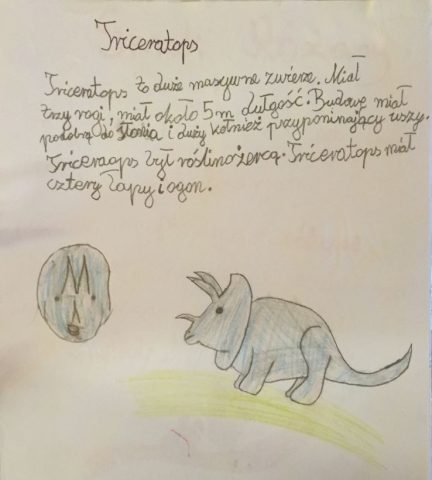 Triceratops
Triceratops to duże masywne zwierze. Miał
trzy rogi; miał około 5 m dułgość. Budowę miał
podobną do słonia i duży kołnież przyponinający uszy.
Triceraops był roślinożercą. Triceratops miał
cztery łapy i ogon.